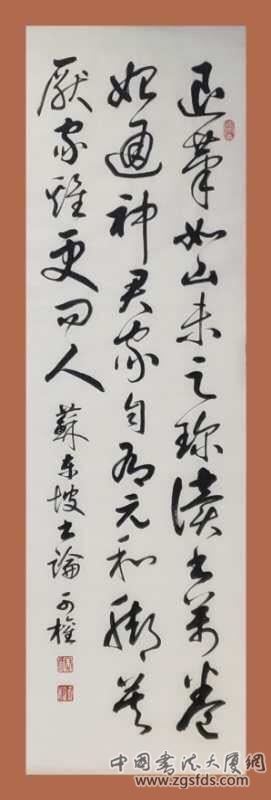 退筆如山未足珍讀書萬卷
始通神君家自有元和腳莫
厭家雞更問人
蘇東坡書論
中國書法大廈網
www.zgsfds.com